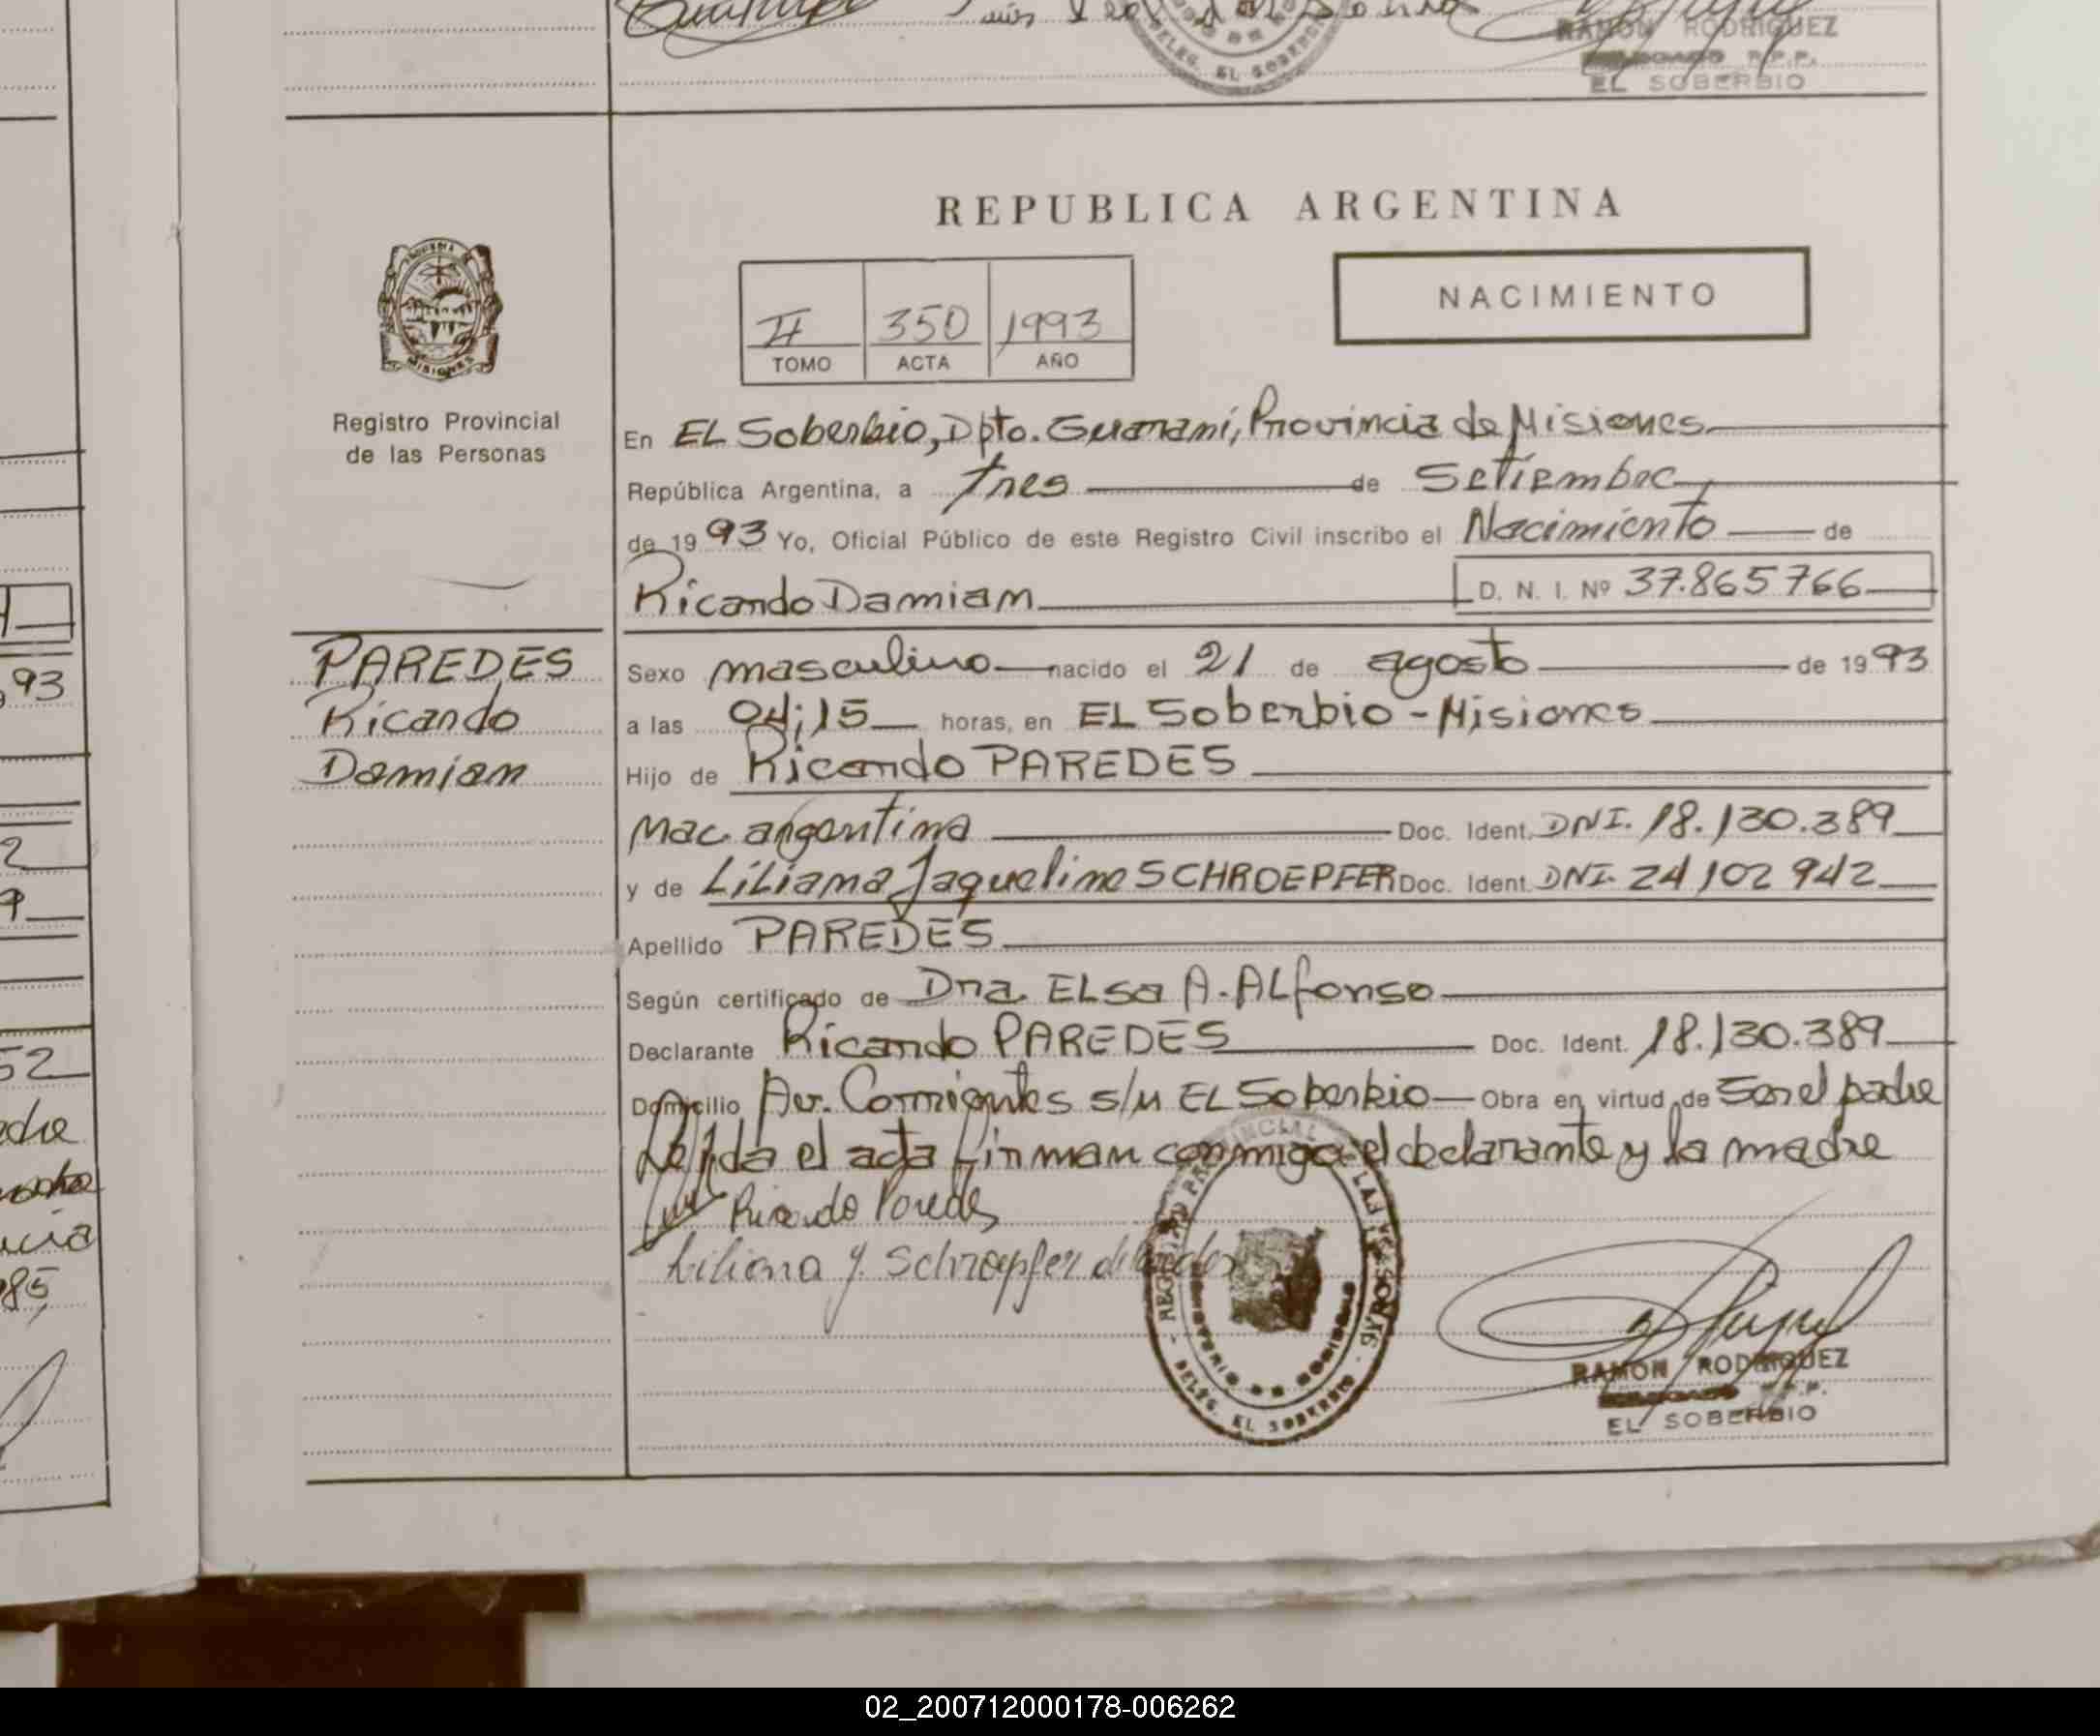 RAMON RODRIGUEZ
R.P.P.
EL SOBERBIO
DELEG. EL SOBERBIO
REPUBLICA ARGENTINA
II 350 1993
TOMO ACTA AÑO
NACIMIENTO
MISIONES
Registro Provincial
de las Personas
En EL Soberbio, Dpto. Guarani, Provincia de Misiones
República Argentina, a tres de Setiembre
de 1993 Yo, Oficial Público de este Registro Civil inscribo el Nacimiento de
Ricardo Damian D. N. I. Nº 37.865766
PAREDES
Ricardo
Damian
Sexo masculino nacido el 21 de agosto de 1993
a las 04;15 horas, en EL Soberbio - Misiones
Hijo de Ricardo PAREDES
Nac. argentina Doc. Ident. DNI. 18.130.389
y de Liliana Jaqueline SCHROEPFER Doc. Ident. DNI. 24 102 942
Apellido PAREDES
Según certificado de Dra. ELsa A. ALfonso
Declarante Ricardo PAREDES Doc. Ident. 18.130.389
Domicilio Av. Corrientes s/n EL Soberbio Obra en virtud de Ser el padre
Leída el acta firman conmigo el declarante y la madre
Ricardo Paredes
Liliana J. Schroepfer de Paredes
DELEG. EL SOBERBIO
RAMON RODRIGUEZ
R.P.P.
EL SOBERBIO
93
2
9
52
85
02_200712000178-006262